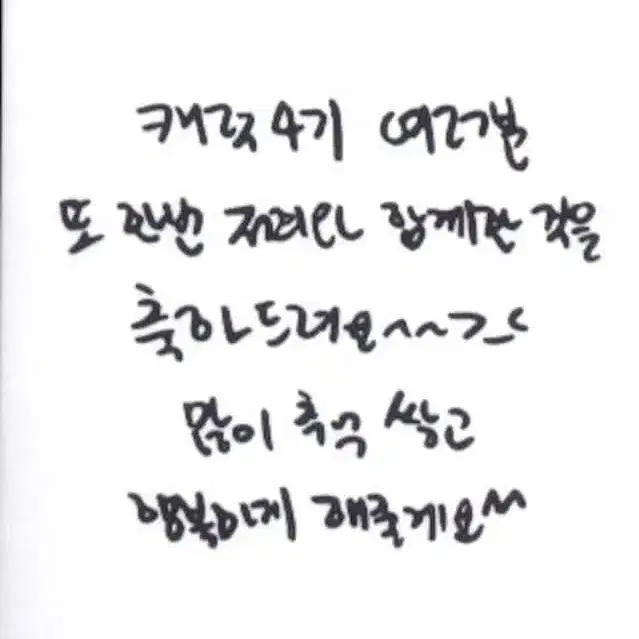 캐럿 4기 여러분
또 한번 저희와 함께한 것을
축하드려요^^~>_<
많이 추억 쌓고
행복하게 해줄게요^^